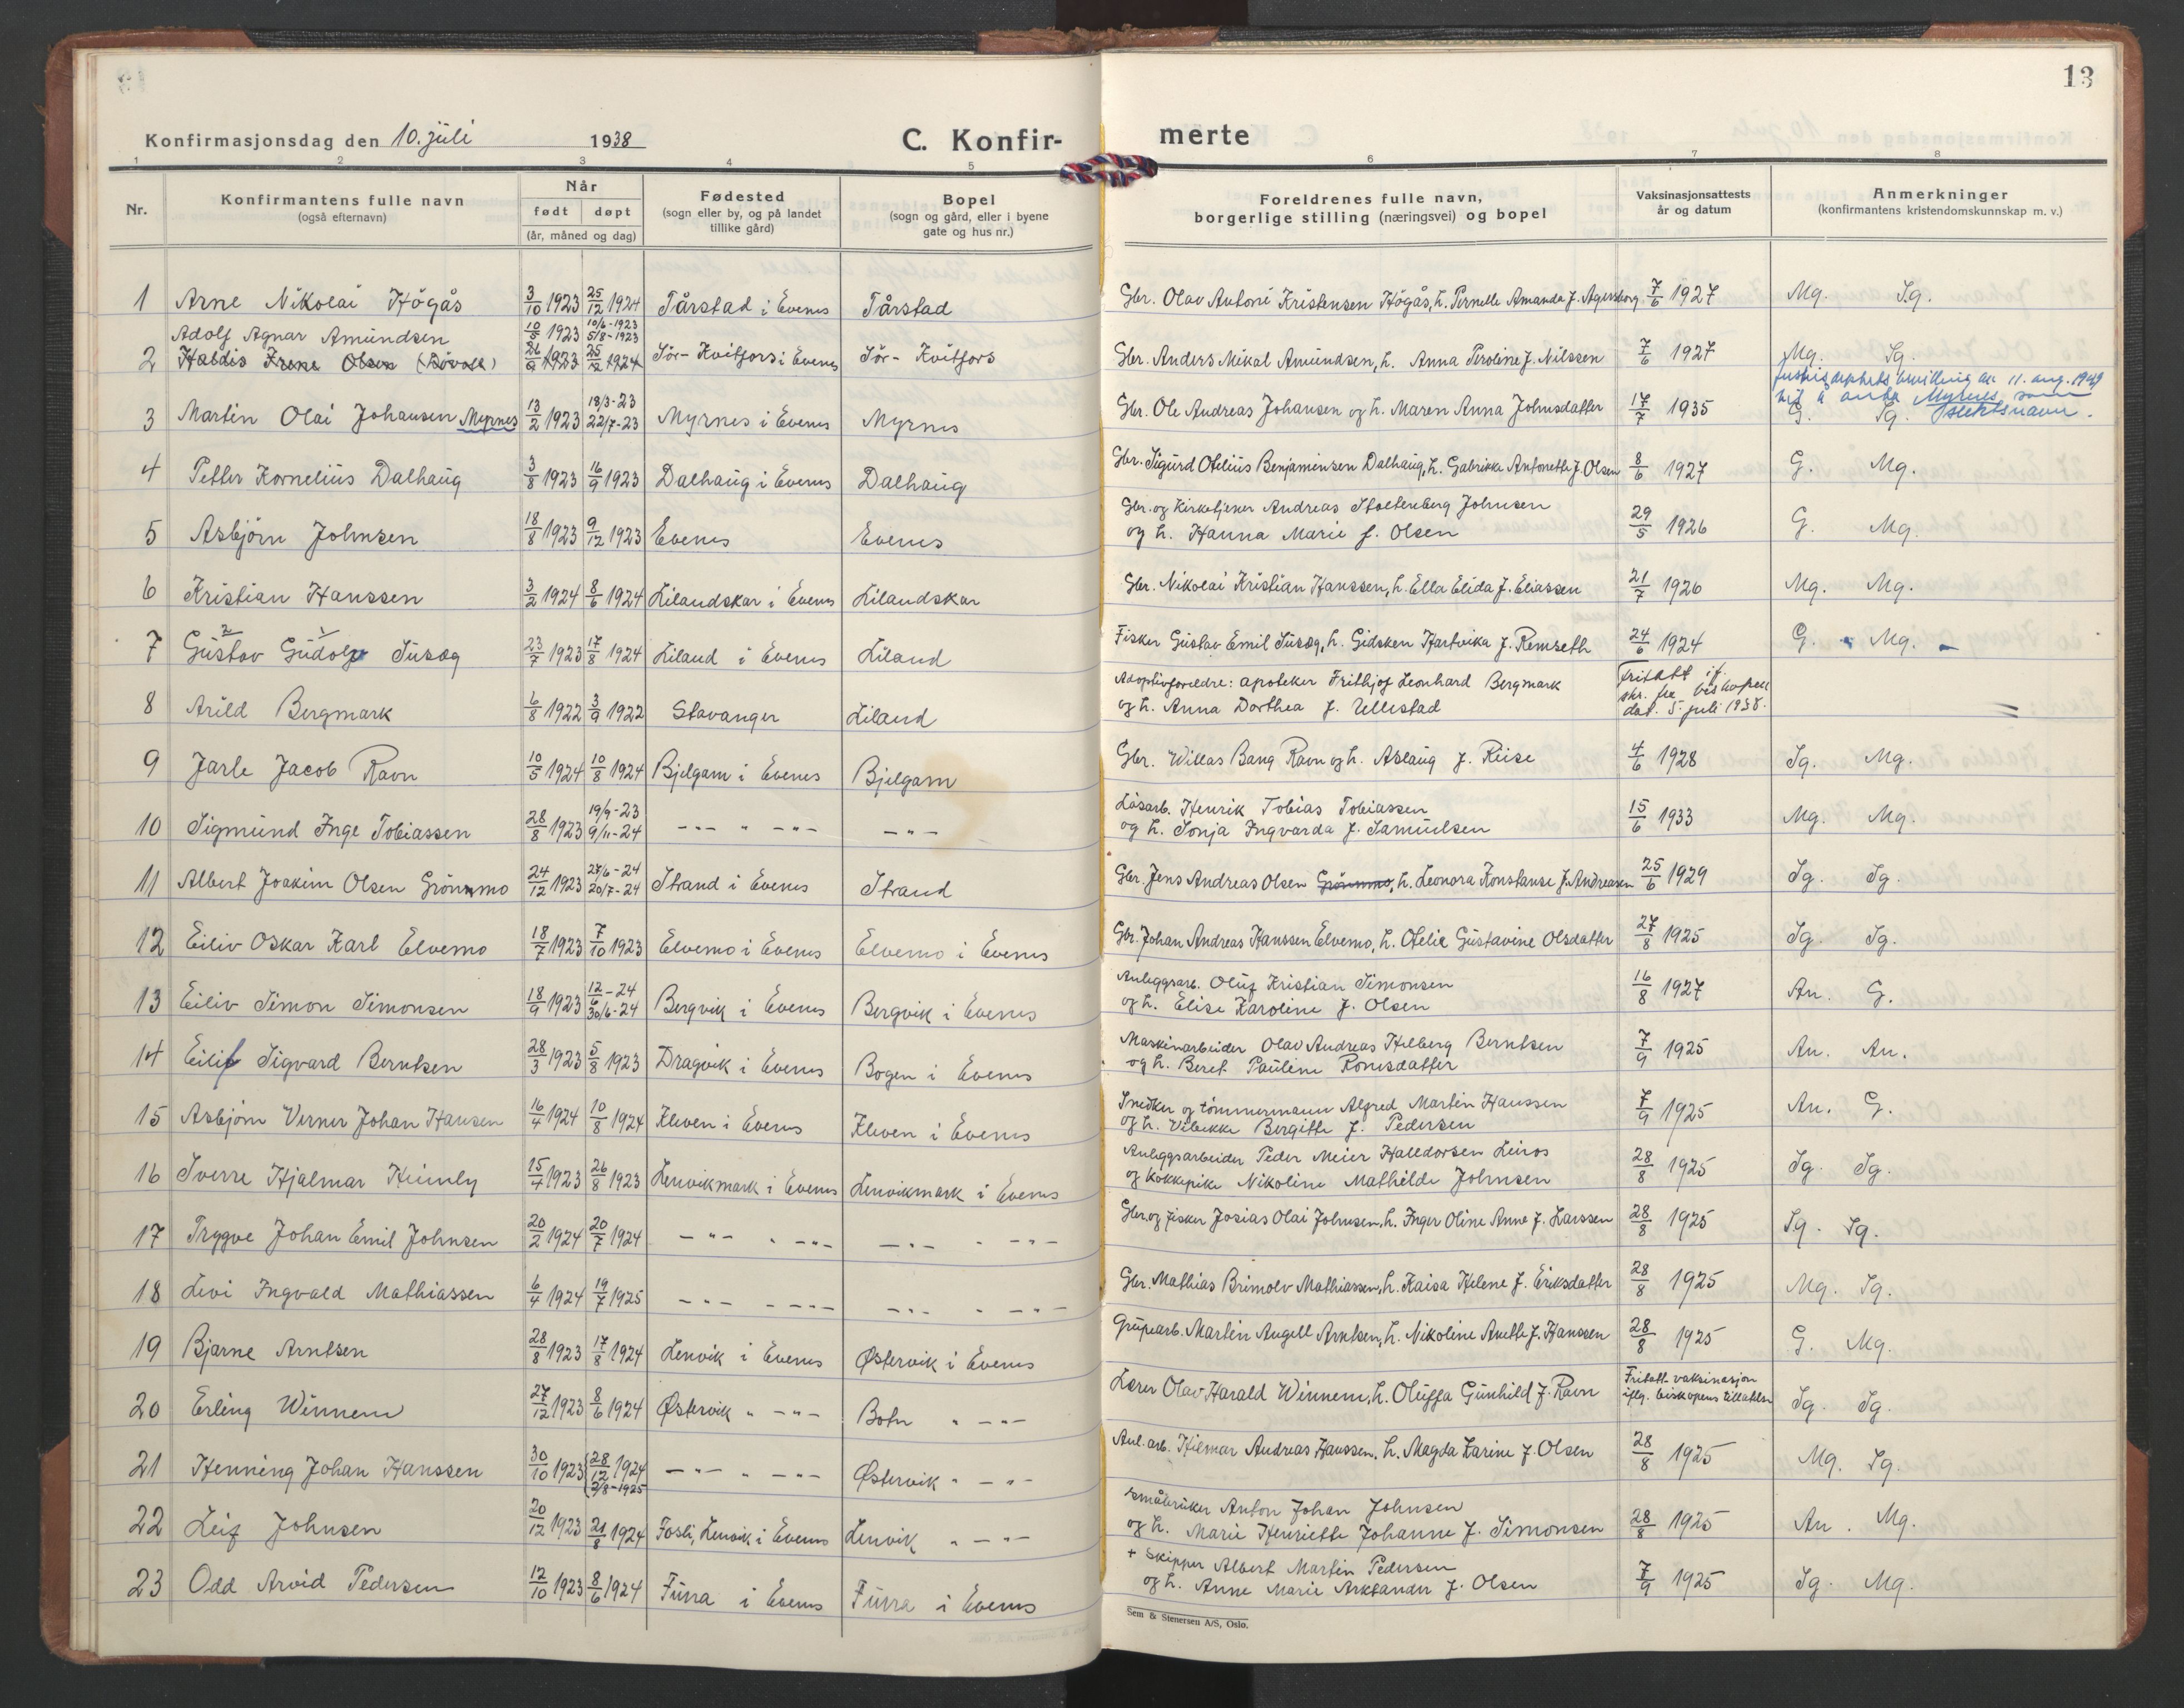 13
Konfirmasjonsdag den 10. juli 1938
C. Konfir-
merte
1 2 3 4 5 6 7 8
Nr.
Konfirmantens fulle navn
(også efternavn)
Når
født døpt
(år, måned og dag)
Fødested
(sogn eller by, og på landet
tillike gård)
Bopel
(sogn og gård, eller i byene
gate og hus nr.)
Foreldrenes fulle navn,
borgerlige stilling (næringsvei) og bopel
Vaksinasjonsattests
år og datum
Anmerkninger
(konfirmantens kristendomskunnskap m. v.)
1 Arne Nikolai Högås 3/10 1923 25/12 1924 Tårstad i Evenes Tårstad Gbr. Olav Antoni Kristensen Högås, h. Pernelle Amanda f. Agersborg 7/6 1927 Mg. Tg.
Adolf Agnar Amundsen 10/5 1923 10/6-1923 5/8-1923
2 Haldis Irene Olsen 26/9 1923 25/12 1924 Sör-Kvitfors i Evenes Sör-Kvitfors Gbr. Anders Mikal Amundsen, h. Anna Peroline f. Nilssen 7/6 1927 Mg. Tg.
11. aug. 1949
å anta Myrnes som
slektsnavn.
3 Martin Olai Johansen Myrnes 13/2 1923 18/3-23 22/7-23 Myrnes i Evenes Myrnes Gbr. Ole Andreas Johansen og h. Maren Anna Johnsdatter 17/7 1935 G. Tg.
4 Petter Kornelius Dalhaug 3/8 1923 16/9 1923 Dalhaug i Evenes Dalhaug Gbr. Sigurd Otelius Benjaminsen Dalhaug, h. Gabrikka Antonette f. Olsen 8/6 1927 G. Mg.
5 Asbjörn Johnsen 18/8 1923 9/12 1923 Evenes Evenes Gbr. og Kirketjener Andreas Stoltenberg Johnsen
og h. Hanna Marie f. Olsen 29/5 1926 G. Mg.
6 Kristian Hanssen 3/2 1924 8/6 1924 Lilandskar i Evenes Lilandskar Gbr. Nikolai Kristian Hanssen, h. Ella Elida f. Eliassen 21/7 1926 Mg. Mg.
2 1
7 Gustav Gudolf Tusæg 23/7 1923 17/8 1924 Liland i Evenes Liland Fisker Gustav Emil Tusæg, h. Gidsken Hartvika f. Remseth 24/6 1924 G. Mg.
8 Arild Bergmark 6/8 1922 3/9 1922 Stavanger Liland Adoptivforeldre: apoteker Frithjof Leonhard Bergmark
og h. Anna Dorthea f. Ullestad Fritatt if.
skr. fra biskopen
dat. 5. juli 1938.
9 Jarle Jacob Ravn 10/5 1924 10/8 1924 Bjelgam i Evenes Bjelgam Gbr. Willas Bang Ravn og h. Aslaug f. Riise 4/6 1928 Tg. Mg.
10 Sigmund Inge Tobiassen 28/8 1923 19/9-23 9/11-24 -"- " -"- -"- Lösarb. Henrik Tobias Tobiassen
og h. Sonja Ingvarda f. Samuelsen 15/6 1933 Mg. Mg.
11 Albert Joakim Olsen Grönmo 24/12 1923 27/6-24 20/7-24 Strand i Evenes Strand Gbr. Jens Andreas Olsen Grönmo, h. Leonora Konstanse f. Andreasen 25/6 1929 Tg. Tg.
12 Eiliv Oskar Karl Elvemo 18/7 1923 7/10 1923 Elvemo i Evenes Elvemo i Evenes Gbr. Johan Andreas Hanssen Elvemo, h. Otelie Gustavine Olsdatter 27/8 1925 Tg. Tg.
13 Eiliv Simon Simonsen 18/9 1923 12/6-24 30/6-24 Bergvik i Evenes Bergvik i Evenes Anleggsarb. Oluf Kristian Simonsen
og h. Elise Karoline f. Olsen 16/8 1927 An. G.
14 Eilif Sigvard Berntsen 28/3 1923 5/8 1923 Dragvik i Evenes Bogen i Evenes Maskinarbeider Olav Andreas Hilberg Berntsen
og h. Beret Pauline Ronesdatter 7/9 1925 An. An.
15 Asbjörn Verner Johan Hansen 16/4 1924 10/8 1924 Kleven i Evenes Kleven i Evenes Snedker og tömmermann Alfred Martin Hanssen
og h. Vibekke Bergitte f. Pedersen 7/9 1925 An. G.
16 Sverre Hjalmar Heimly 15/4 1923 26/8 1923 Lenvikmark i Evenes Lenvikmark i Evenes Anleggsarbeider Peder Meier Halldorsen Leiros
og kokkepike Nikoline Mathilde Johnsen 28/8 1925 Tg. Tg.
17 Trygve Johan Emil Johnsen 20/2 1924 20/7 1924 -"- " -"- -"- " -"- Gbr. og fisker Josias Olai Johnsen, h. Inger Oline Anne f. Larssen 28/8 1925 Tg. Tg.
18 Levi Ingvald Mathiassen 6/4 1924 19/7 1925 -"- -"- -"- " -"- Gbr. Mathias Brimolv Mathiassen, h. Kaisa Helene f. Eriksdatter 28/8 1925 Mg. Tg.
19 Bjarne Arntsen 28/8 1923 17/8 1924 Lenvik i Evenes Østervik i Evenes Grubearb. Martin Angell Arntsen, h. Nikoline Anette f. Hanssen 28/8 1925 G. Mg.
20 Erling Winnem 27/12 1923 8/6 1924 Østervik " -"- Botn " -"- Lærer Olav Harald Winnem, h. Oluffa Gunhild f. Ravn Fritatt vaksinasjon
iflg. biskopens tillatelse Tg. Tg.
21 Henning Johan Hanssen 30/10 1923 28/12 1924 2/8-1925 -"- " -"- Østervik " -"- Anl. arb. Hilmar Andreas Hanssen, h. Magda Karine f. Olsen 28/8 1925 Mg. Tg.
22 Leif Johnsen 20/12 1923 21/8 1924 Fosli, Lenvik i Evenes Lenvik " -"- Småbruker Anton Johan Johnsen
og h. Marie Henriette Johanne f. Simonsen 28/8 1925 An. Mg.
23 Odd Arvid Pedersen 12/10 1923 8/6 1924 Furra i Evenes Furra i Evenes + Skipper Albert Martin Pedersen
og h. Anne Marie Arksander f. Olsen 7/9 1925 Tg. Mg.
Sem & Stenersen A/S, Oslo.